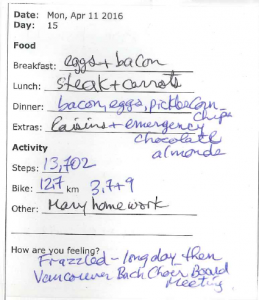 Date: Mon, Apr 11 2016
Day: 15
Food
Breakfast: eggs + bacon
Lunch: steak + carrots
Dinner: bacon, eggs, pickle corn
chips
Extras: Raisins + emergency
chocolate
almonds
Activity
Steps: 13,702
Bike: 12.7 km 3.7+9
Other: Mary homework
How are you feeling?
Frazzled - long day then
Vancouver Bach Choir Board
Meeting